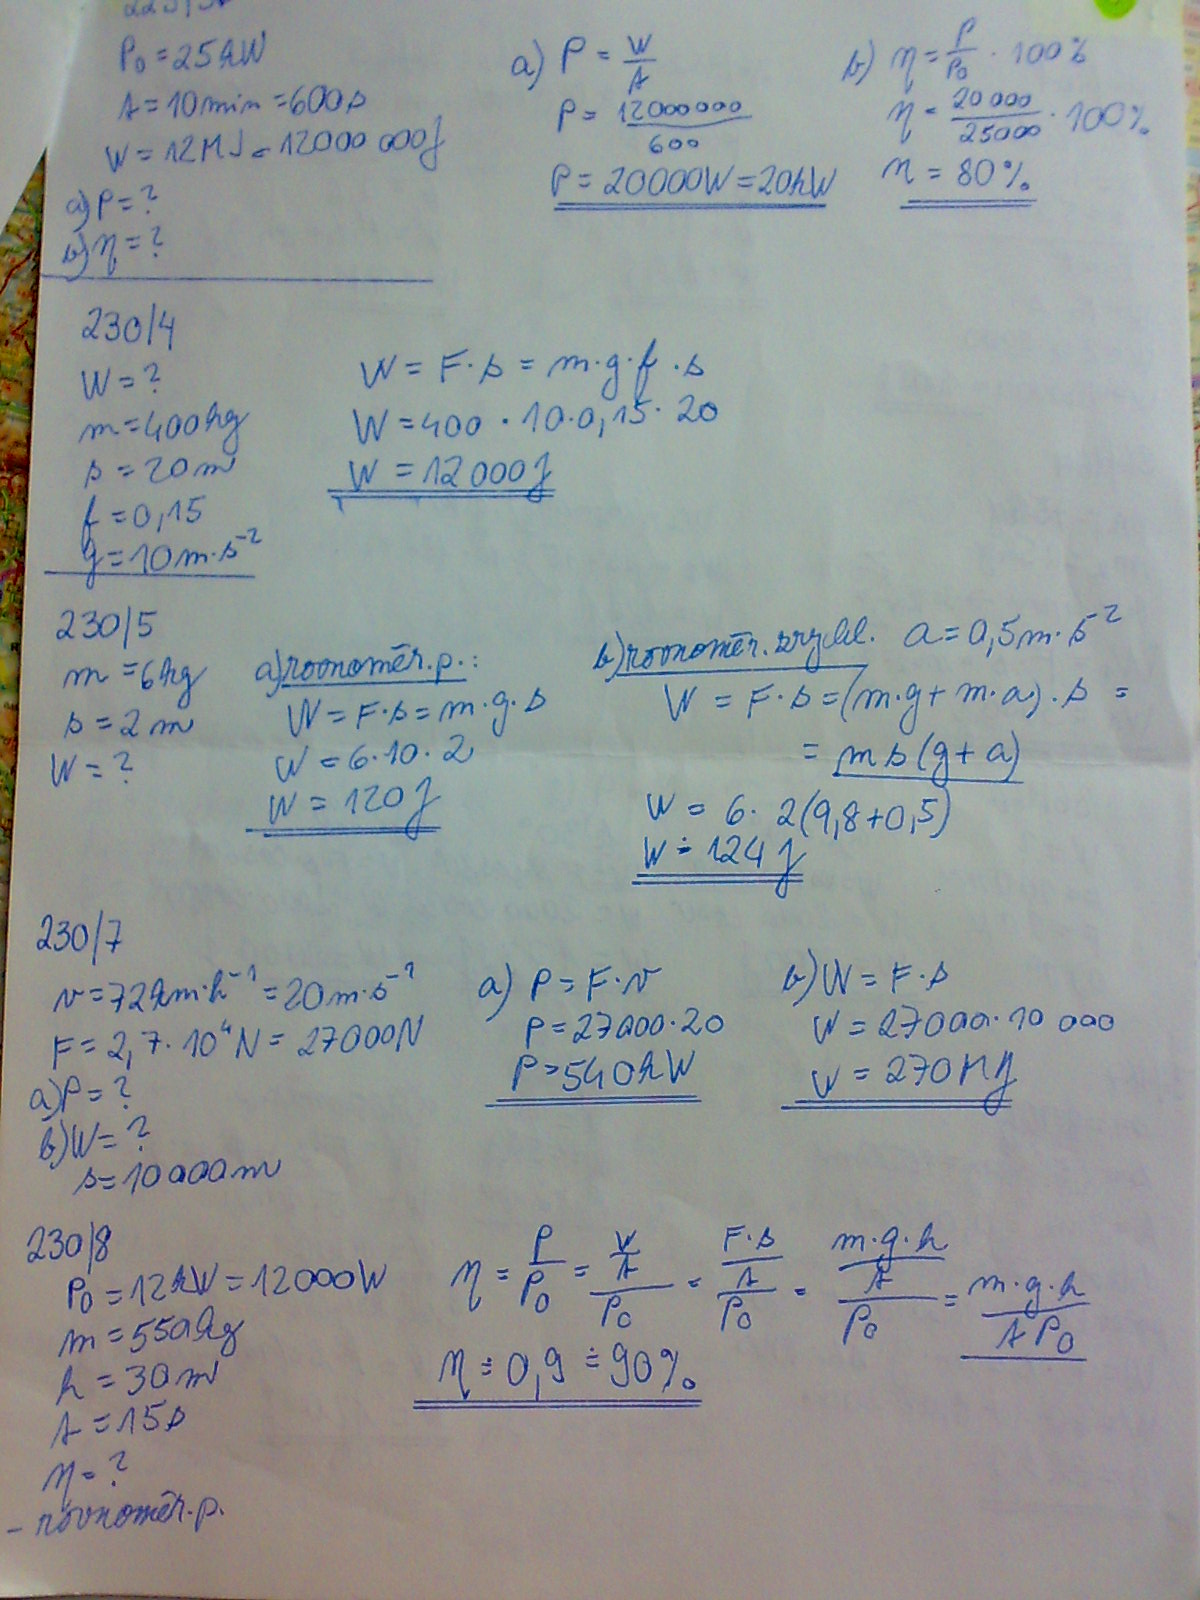 P₀ = 25kW
t = 10min = 600s
W = 12MJ = 12000 000J
a) P = ?
b) η = ?
a) P = W/t
P = 12000000/600
P = 20000W = 20kW
b) η = P/P₀ · 100%
η = 20 000/25000 · 100%
η = 80%
230/4
W = ?
m = 400kg
s = 20m
f = 0,15
g = 10m·s⁻²
W = F·s = m·g·f·s
W = 400 · 10·0,15·20
W = 12 000J
230/5
m = 6kg
s = 2m
W = ?
a) rovnoměr. p.:
W = F·s = m·g·s
W = 6·10·2
W = 120J
b) rovnoměr. zrychl. a = 0,5m·s⁻²
W = F·s = (m·g + m·a)·s =
= ms(g + a)
W = 6· 2(9,8+0,5)
W ≐ 124J
230/7
v = 72km·h⁻¹ = 20m·s⁻¹
F = 2,7·10⁴N = 27000N
a) P = ?
b) W = ?
s = 10000m
a) P = F·v
P = 27000·20
P = 540kW
b) W = F·s
W = 27000·10 000
W = 270MJ
230/8
P₀ = 12kW = 12000W
m = 550kg
h = 30m
t = 15s
η = ?
- rovnoměr. p.
η = P/P₀ = (W/t)/P₀ = (F·s/t)/P₀ = (m·g·h/t)/P₀ = m·g·h/tP₀
η ≐ 0,9 ≐ 90%